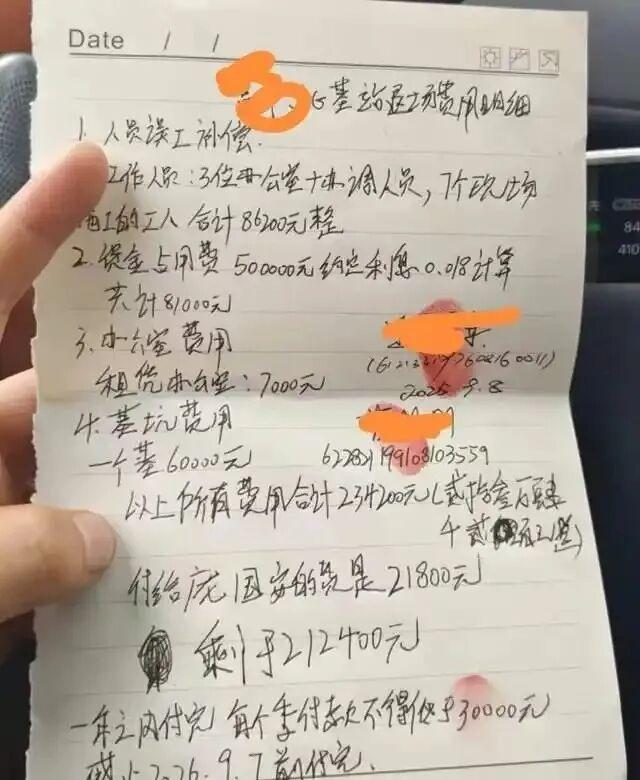 Date / /
G基站退场费用明细
1. 人员误工补偿.
工作人员：3位办公室+协调人员，7个现场
施工的工人 合计86200元整
2. 资金占用费 500000元约定利息0.018计算
共计81000元
3. 办公室费用
租凭办公室：7000元
2025.9.8
4. 基坑费用
一个基60000元
以上所有费用合计234200元(贰拾叁万肆
付给庞国安的费是21800元
剩于212400元
一年之内付完 每个季付款不得低于30000元
截止2026.9.7前付完.
84
410